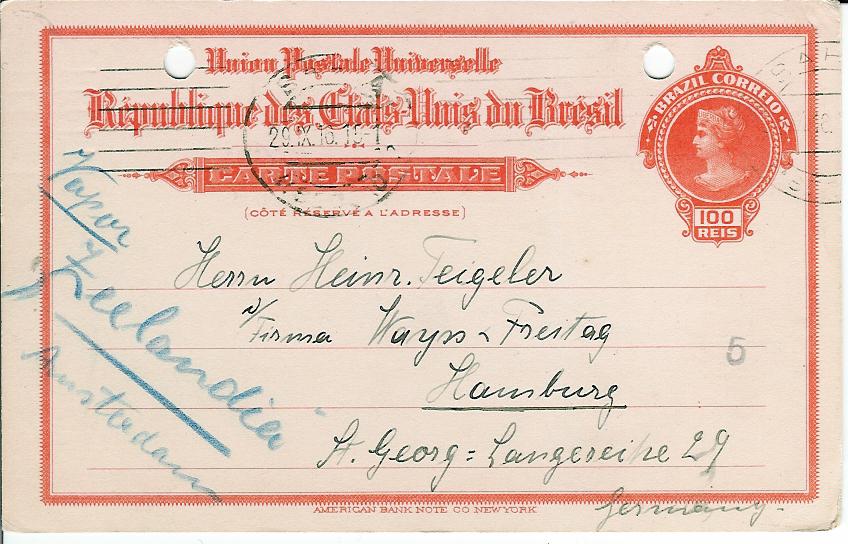 Union Postale Universelle
République des Etats-Unis du Brésil
CARTE POSTALE
(CÔTÉ RÉSERVÉ A L'ADRESSE)
BRAZIL CORREIO
100
REIS
29.IX.
Vapor
Zeelandia
Amsterdam
Herrn Heinr. Teigeler
Firma Wayss & Freitag
5
Hamburg
St. Georg = Langereihe 29
Germany.
AMERICAN BANK NOTE CO NEW YORK